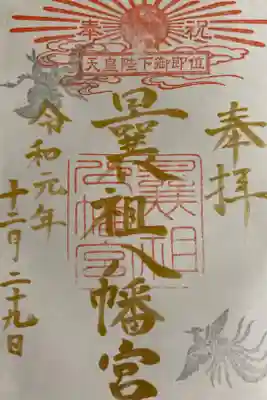 奉祝
天皇陛下御即位
奉拝
曩祖八幡宮
曩祖八幡宮
令和元年
十二月二十九日